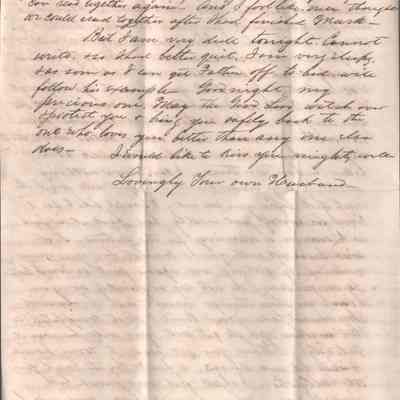 can read together again. And I feel like, even though
we could read together after I had finished Mark —
But I am very dull tonight. Cannot
write. so I had better quit. I am very sleepy,
& as soon as I can get Father off to bed, will
follow his example Good night, my
precious one. May the Good Lord watch over
& protect you & bring you safely back to the
one who loves you better than any one else
does — I would like to kiss you mighty well
Lovingly Your own Husband